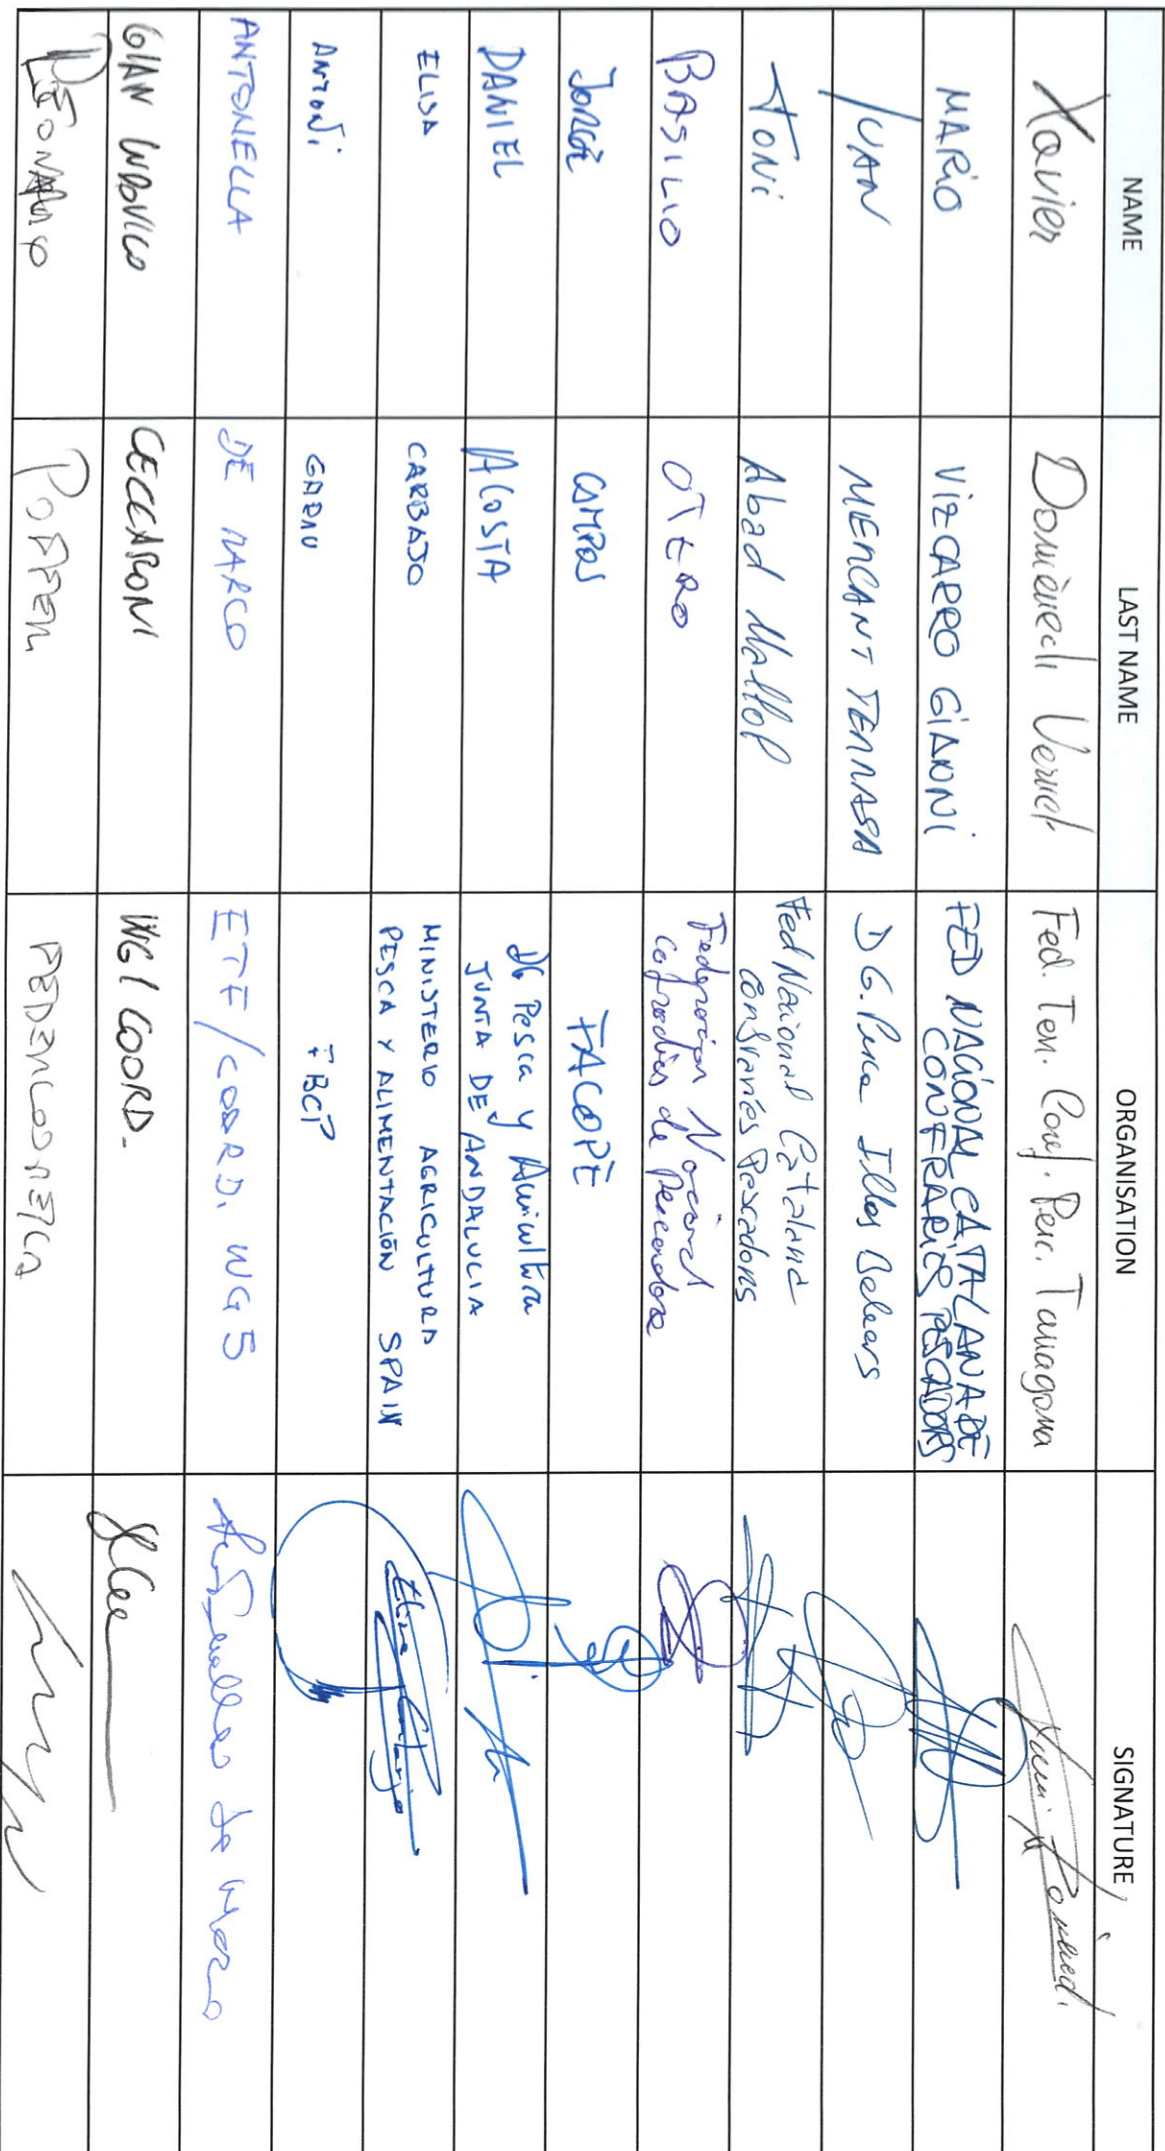 NAME LAST NAME ORGANISATION SIGNATURE
Xavier Domènech Vernet Fed. Terr. Conf. Pesc. Tarragona
MARIO VIZCARRO GIANNI FED NACIONAL CATALANA DE
CONFRARIES PESCADORS
JUAN MERCANT TERRASA D G. Pesca Illes Balears
TONI Abad Mallol Fed Nacional Catalana
Confraries Pescadors
BASILIO OTERO Federación Nacional
Cofradías de Pescadores
JORGE CAMPOS FACOPE
DANIEL ACOSTA DG Pesca y Acuicultura
JUNTA DE ANDALUCIA
ELISA CARBAJO MINISTERIO AGRICULTURA
PESCA Y ALIMENTACIÓN SPAIN
Elisa Carbajo
ANTONI GARAU FBCP
ANTONELLA DE MARCO ETF/COORD. WG5 Antonella de Marco
GIAN LUDOVICO CECCARONI WG1 COORD.
FEDERCOOPESCA